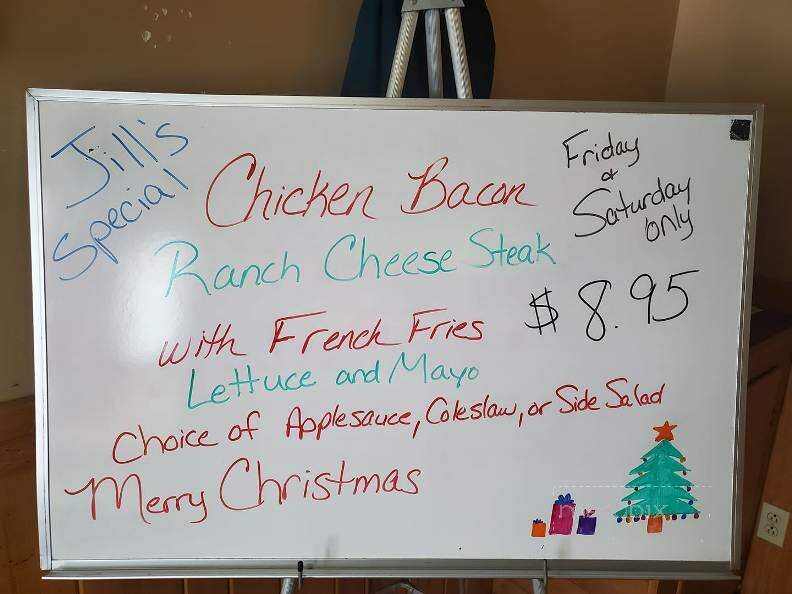 Jill's
Special
Chicken Bacon
Ranch Cheese Steak
Friday
&
Saturday
only
$8.95
with French Fries
Lettuce and Mayo
Choice of Applesauce, Coleslaw, or Side Salad
Merry Christmas